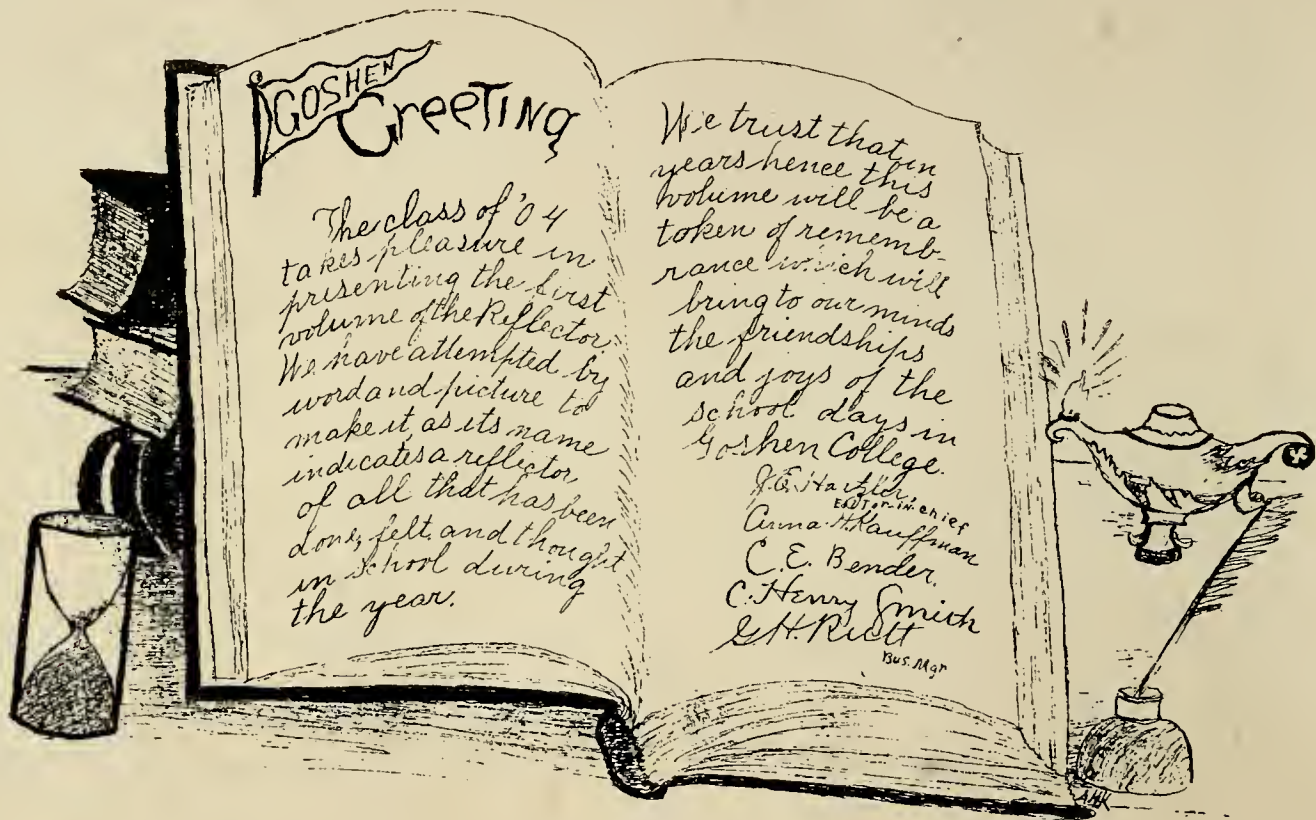 GOSHEN
Greeting
The class of '04
takes pleasure in
presenting the first
volume of the Reflector.
We have attempted by
word and picture to
make it as its name
indicates a reflector,
of all that has been
done, felt, and thought
in school during
the year.
We trust that in
years hence this
volume will be a
token of rememb-
rance which will
bring to our minds
the friendships
and joys of the
school days in
Goshen College.
J.E. Hartzler,
EDITOR-IN-CHIEF
Anna H. Kauffman
C.E. Bender,
C. Henry Smith
G.H. Rutt
Bus. Mgr
AHK